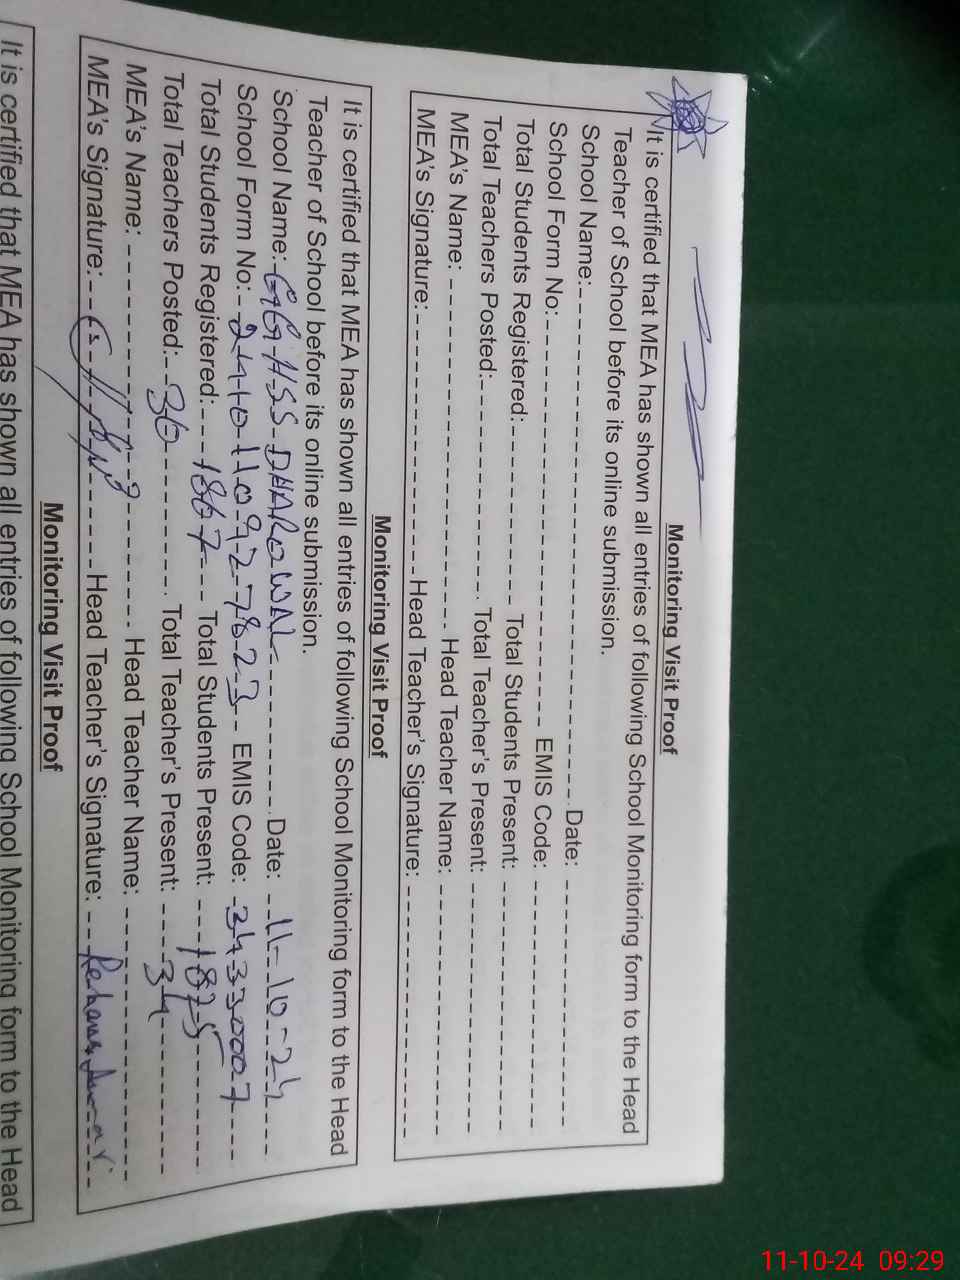 Monitoring Visit Proof
It is certified that MEA has shown all entries of following School Monitoring form to the Head
Teacher of School before its online submission.
School Name: Date:
School Form No: EMIS Code:
Total Students Registered: Total Students Present:
Total Teachers Posted: Total Teacher's Present:
MEA's Name: Head Teacher Name:
MEA's Signature: Head Teacher's Signature:
Monitoring Visit Proof
It is certified that MEA has shown all entries of following School Monitoring form to the Head
Teacher of School before its online submission.
School Name: GGHSS DHAROWAL Date: 11-10-24
School Form No: EMIS Code: 34330007
Total Students Registered: 1867 Total Students Present:
Total Teachers Posted: 36 Total Teacher's Present: 34
MEA's Name: Head Teacher Name:
MEA's Signature: Head Teacher's Signature:
Monitoring Visit Proof
It is certified that MEA has shown all entries of following School Monitoring form to the Head
11-10-24 09:29